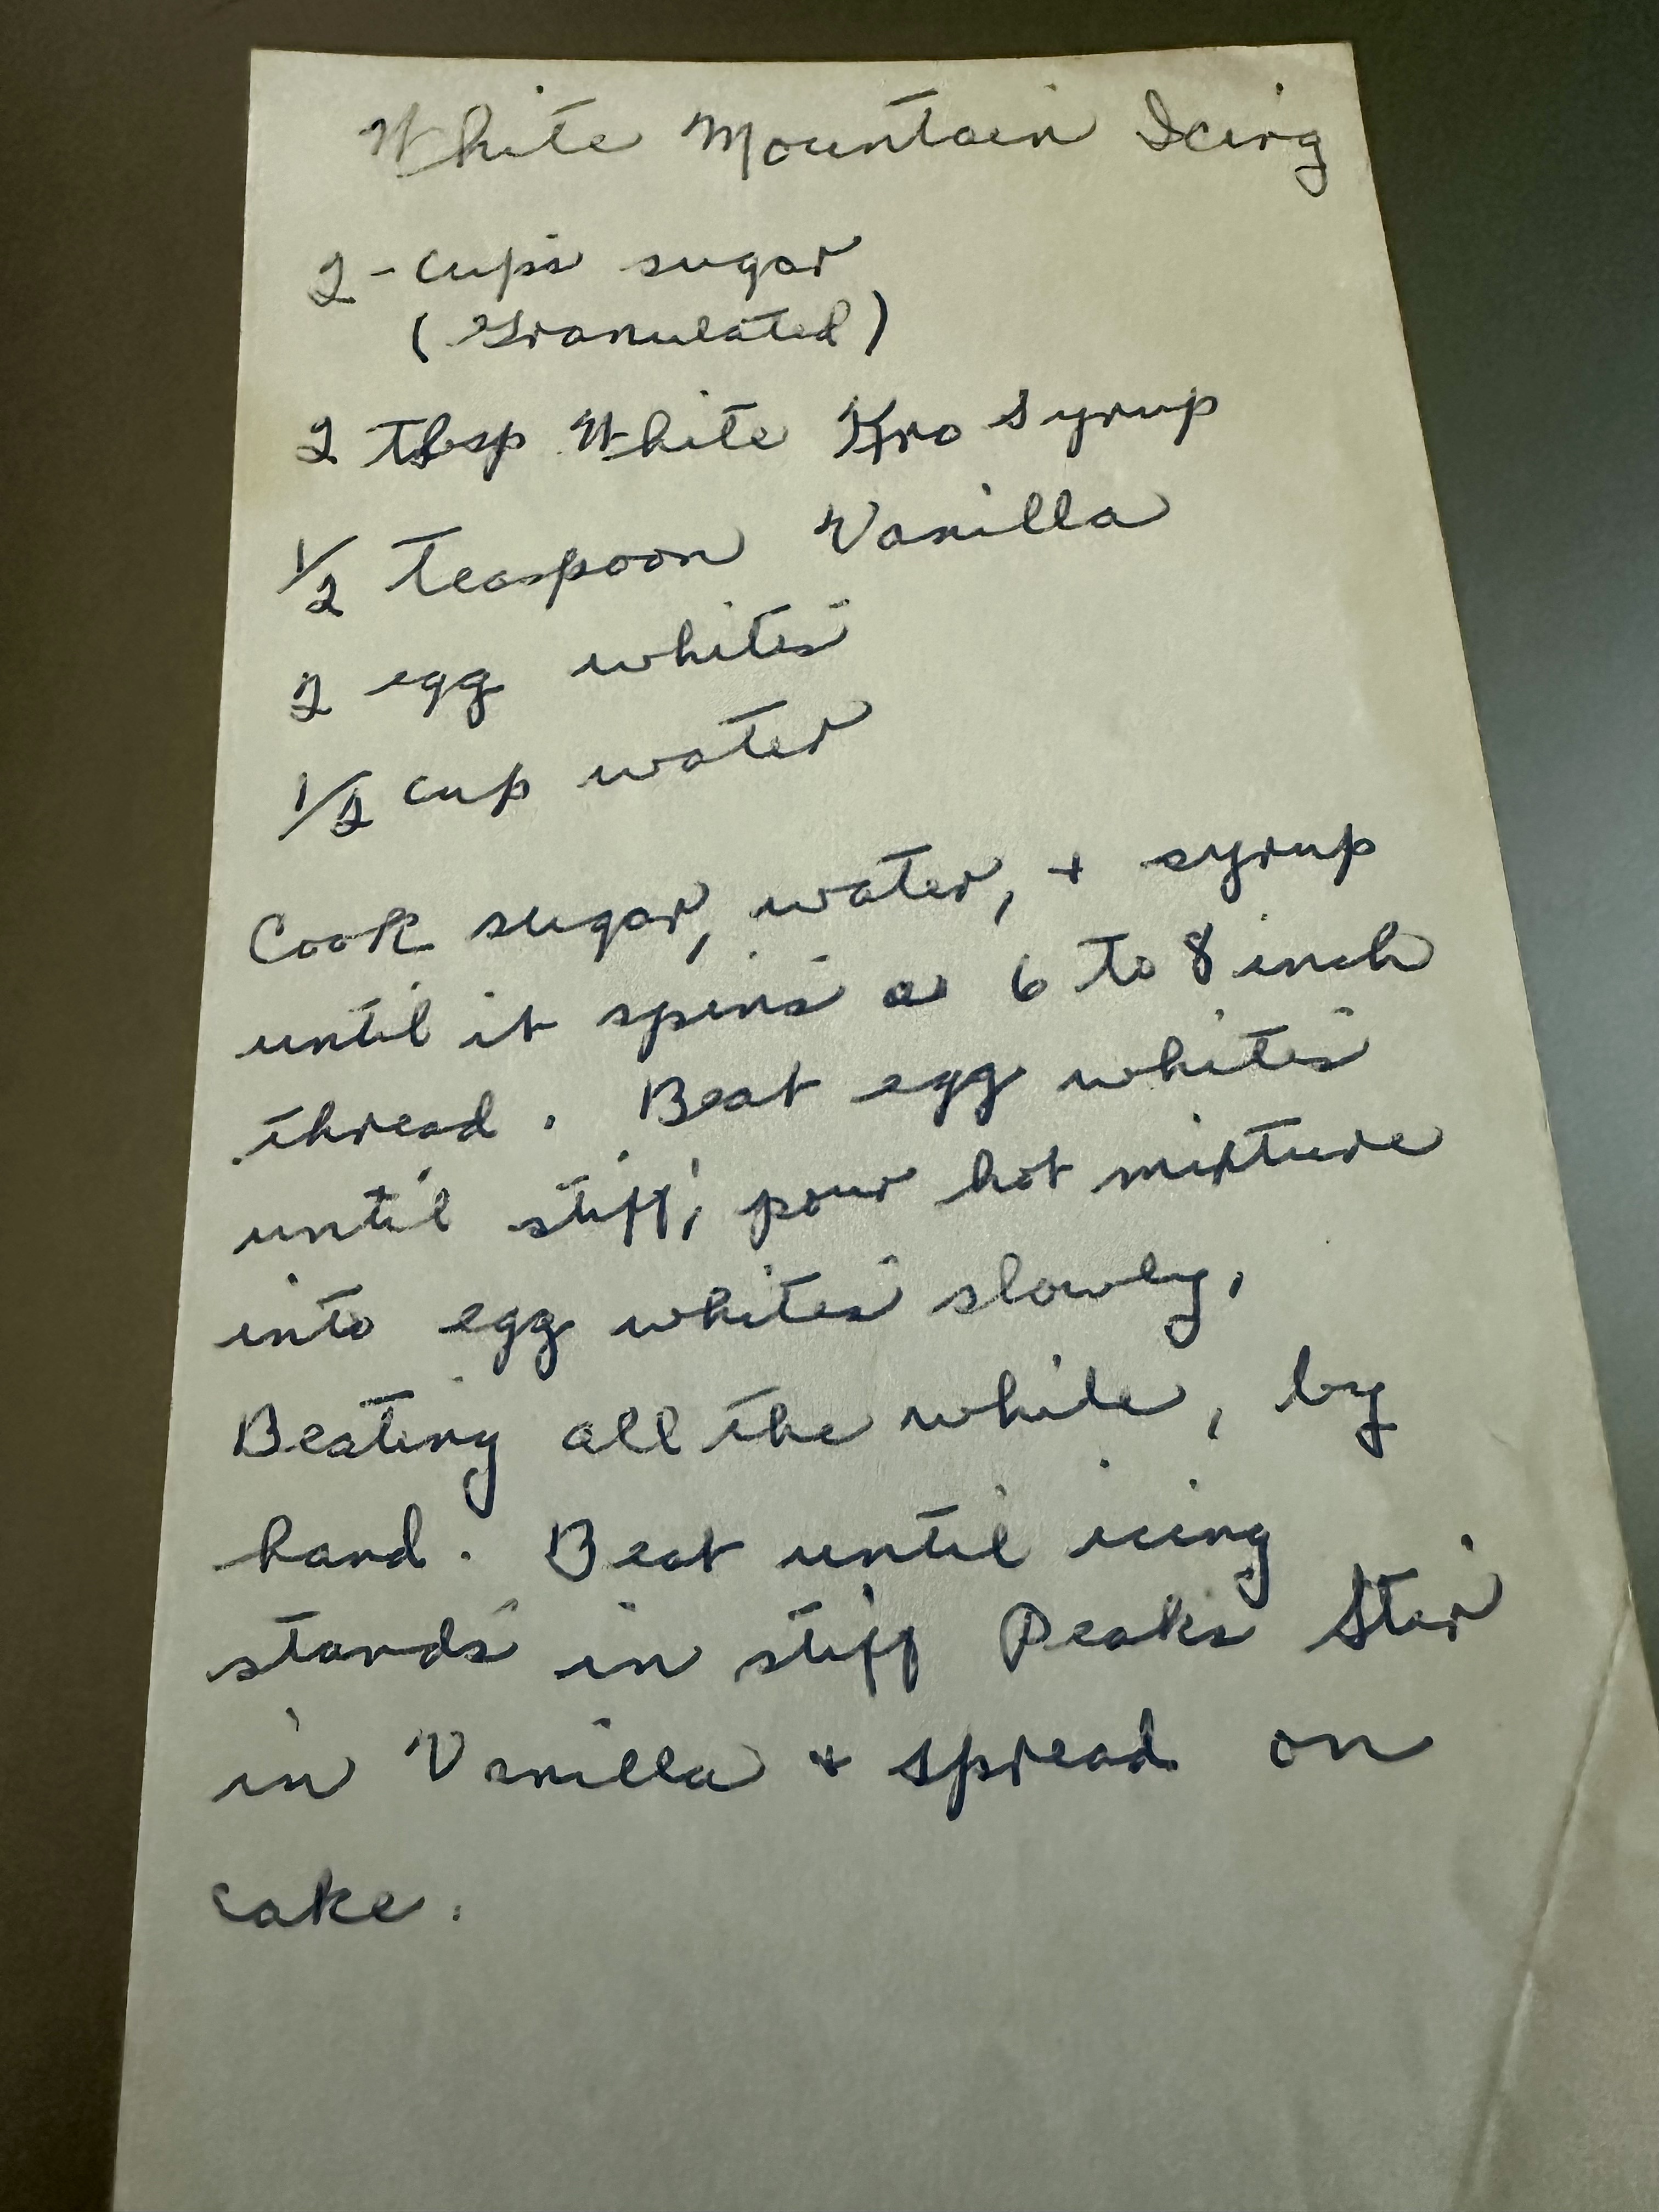 White Mountain Icing
2 - cups sugar
(Granulated)
2 Tbsp White Kro Syrup
1/2 Teaspoon Vanilla
2 egg whites
1/2 cup water
Cook sugar, water, + syrup
until it spins a 6 to 8 inch
thread. Beat egg whites
until stiff, pour hot mixture
into egg whites slowly,
Beating all the while, by
hand. Beat until icing
stands in stiff Peaks Stir
in Vanilla + spread on
cake.